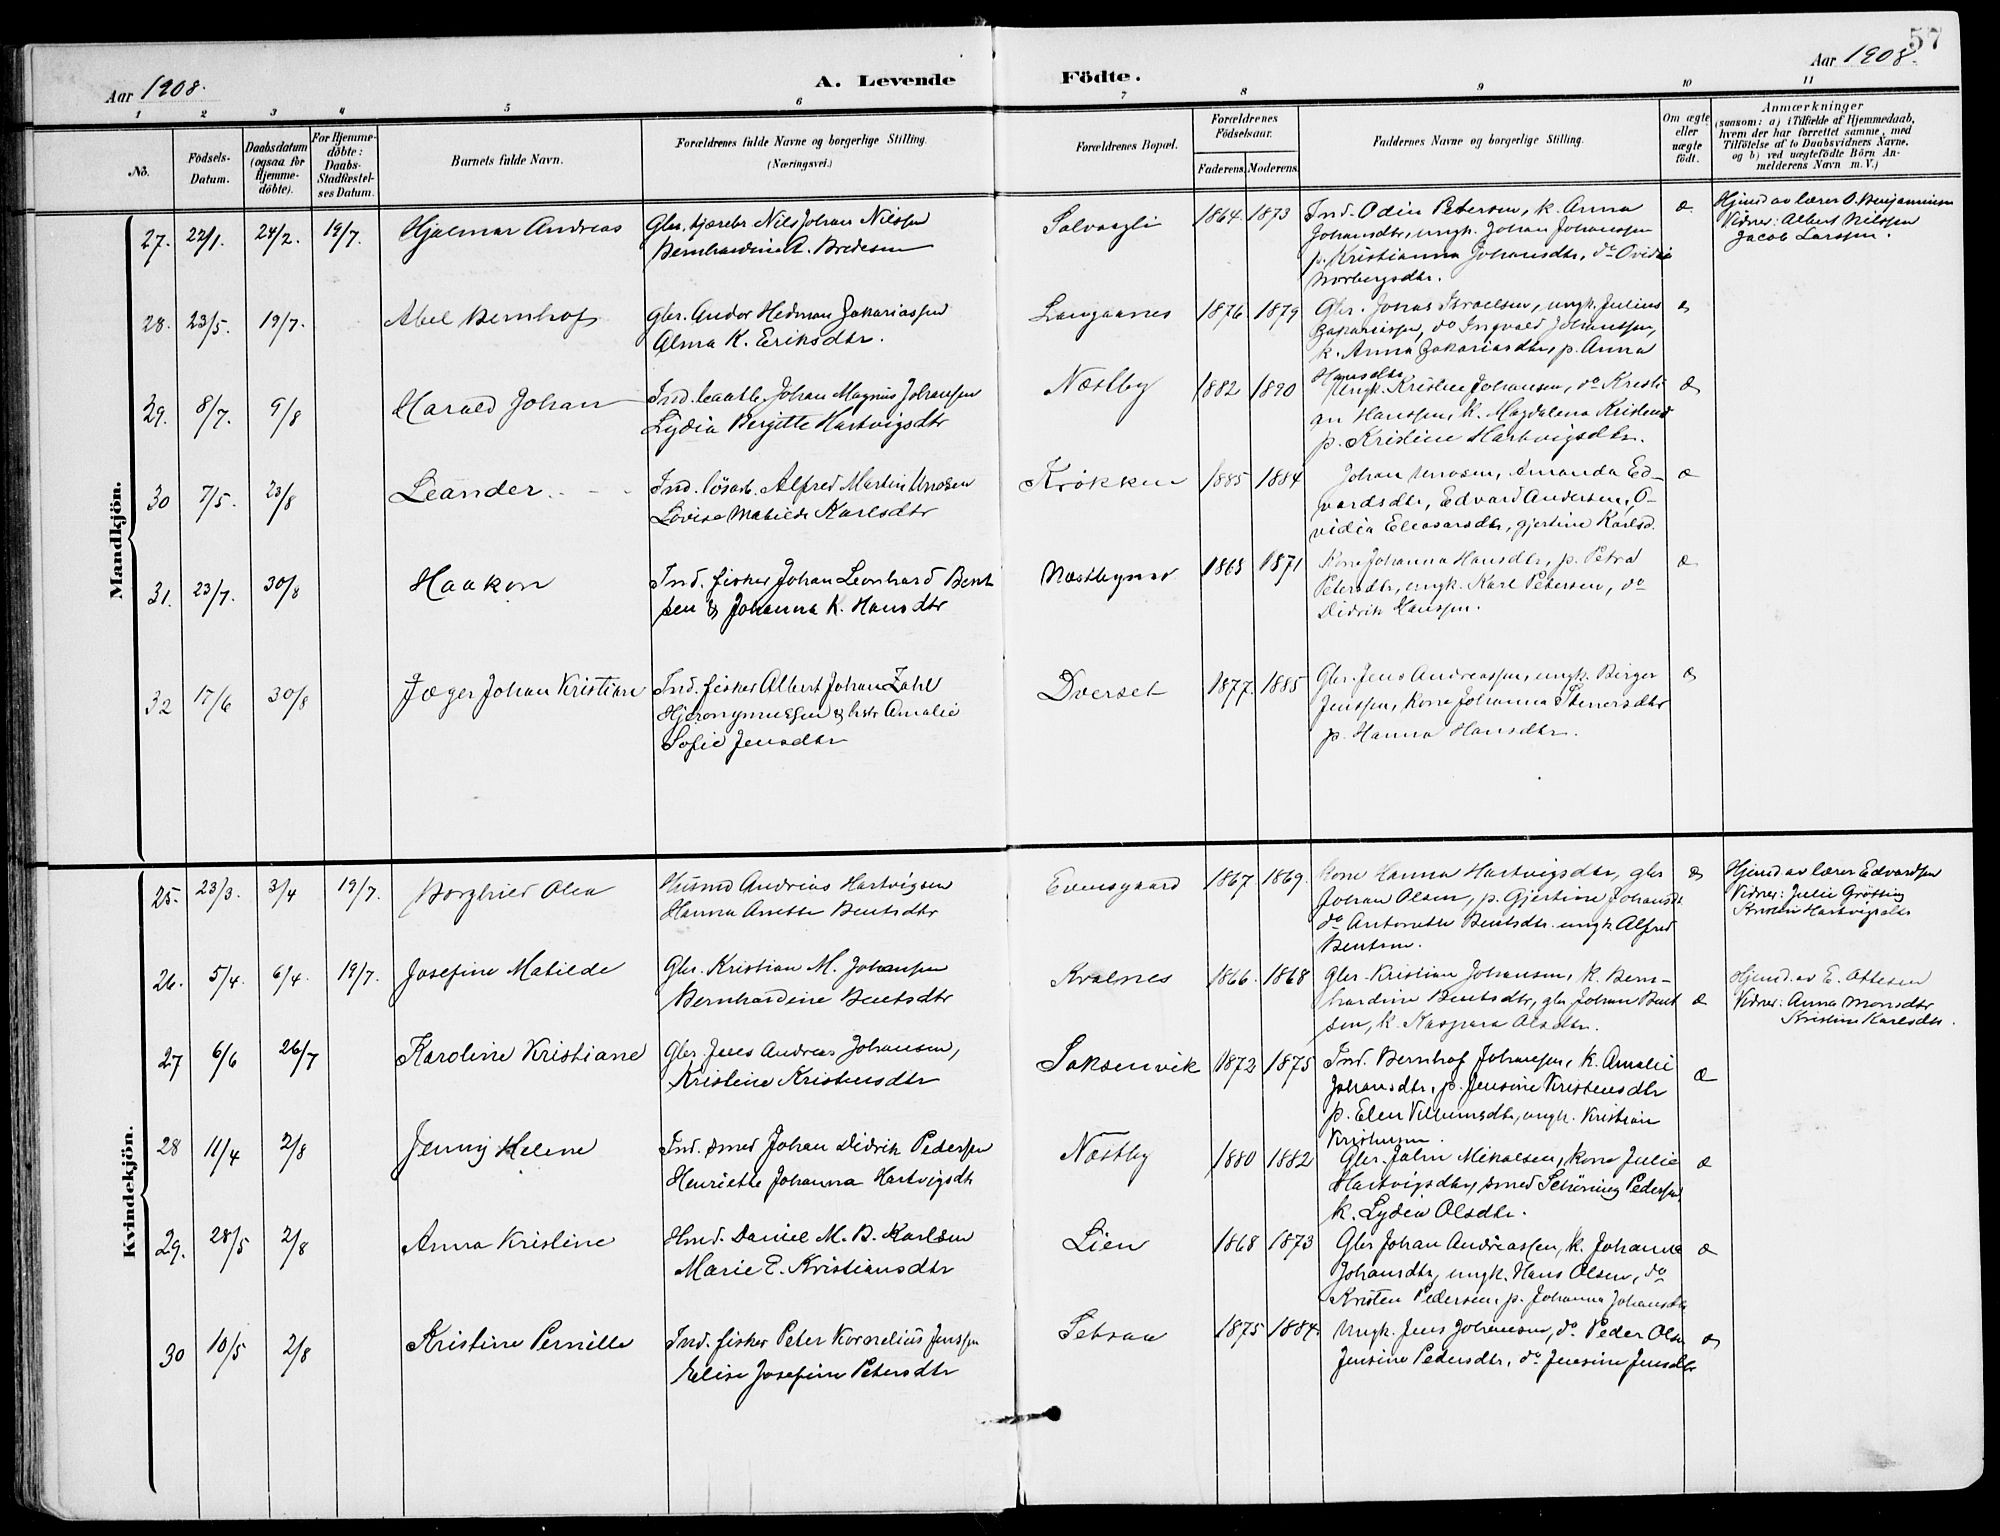 57
Aar 1908.
A. Levende Födte.
Aar 1908.
1 2 3 4 5 6 7 8 9 10 11
No.
Födsels-Datum.
Daabsdatum (ogsaa for Hjemme-döbte).
For Hjemme-döbte: Daabs-Stadfæstel-ses Datum.
Barnets fulde Navn.
Forældrenes fulde Navne og borgerlige Stilling.
(Næringsvei.)
Forældrenes Bopæl.
Forældrenes Födselsaar.
Faderens. Moderens.
Faddernes Navne og borgerlige Stilling.
Om ægte eller uægte födt.
Anmærkninger
(saasom: a) i Tilfælde af Hjemmedaab,
hvem der har forrettet samme, med
Tilföielse af to Daabsvidners Navne.
og b) ved uægtefödte Börn An-
melderens Navn m. V.)
Mandkjön.
27. 22/1. 24/2. 19/7. Hjalmar Andreas
Gbr. kjærebr Nils Johan Nilssen
Bernhardine A. Bredesen
Solvaagli 1864. 1873
Ind. Odin Petersen, k. Anna
Johansdtr, ungk. Johan Johanssen
p. Kristianna Johansdtr, do Ovidia
Norbergsdtr.
æ
Hjmd av lærer O. Benjaminsen
Vidner: Albert Nilssen
Jacob Larssen.
28. 23/5. 19/7. Abel Bernhof
Gbr. Andor Hedman Zakariassen
Alma K. Eriksdtr.
Langaanes 1876 1879
Gbr. Jonas Israelsen, ungk. Julius
Zakariassen, do Ingvald Johanssen,
k. Anna Zakariasdtr, p. Anna
Hansdtr
æ
29. 8/7. 9/8 Harald Johan
Ind. Johan Magnus Johansen
Lydia Bergitte Hartvigsdtr
Næstby 1882 1890
Ungk. Kristen Johansen, do Kristi
an Hanssen, k. Magdalena Kristensd
p. Kristine Hartvigsdtr.
æ
30 7/5. 23/8 Leander
Ind. lösarb. Alfred Martin Unosen
Lovise Matilde Karlsdtr
Krøkken 1885 1884
Johan Unosen, Amanda Ed-
vardsdtr, Edvard Andersen, O-
vidia Eleasarsdtr, Gjertine Karlsd.
æ
31. 23/7. 30/8 Haakon
Ind. fisker Johan Leonhard Bent
sen & Johanna K. Hansdtr
1868 1871
Kone Johanna Hansdtr, p. Petra
Petersdtr, ungk. Karl Petersen, do
Didrik Hanssen.
æ
32 17/6 30/8 Jæger Johan Kristian
Ind. fisker Albert Johan Zahl
Hjeronymussen & hstr Amalie
Sofie Jensdtr
Dverset 1877. 1885
Gbr. Jens Andreassen, ungk. Birger
Jenssen, Kone Johanna Stenersdtr
p. Hanna Hansdtr.
æ
Kvindekjön.
25. 23/3. 3/4 19/7. Borghild Olea
Husmd Andreas Hartvigsen
Hanna Anette Bentsdtr
Evensgaard 1867 1869.
Kone Hanna Hartvigsdtr, gbr
Johan Olsen, p. Gjertine Johansdt
do Antonette Bentsdtr. ungk. Alfred
Bentsen.
æ
Hjmd av lærer Edvardsen
Vidner: Julie Grötting
Kristine Hartvigsdtr
26. 5/4. 6/4. 19/7. Josefine Matilde
Gbr. Kristian M. Johansen
Bernhardine Bentsdtr
Kvalnes 1866. 1868
Gbr. Kristian Johansen, k. Bern-
hardine Bentsdtr, gbr Johan Bent
sen, k. Kaspara Olsdtr.
æ
Hjmd. av E. Ottesen
Vidner: Anna Monsdtr
Kristine Karlsdtr.
27 6/6 26/7 Karoline Kristiane
Gbr. Jens Andreas Johansen,
Kristine Kristensdtr
Saksenvik 1872 1875
Ind. Bernhof Johansen, k. Amalie
Johansdtr, p. Jensine Kristensdtr
p. Elen Villumsdtr, ungk. Kristian
Kristensen.
æ
28 11/4 2/8 Jenny Helene
Ind. smed Johan Didrik Pedersen
Henriette Johanna Hartvigsdtr
Næstby 1880 1882
Gbr. John Mikalsen, kone Julie
Hartvigsdtr, smed Schöning Pedersen
k. Lydia Olsdtr.
æ
29. 28/5 2/8 Anna Kristine
Hmd. Daniel M. B. Karlsen
Marie E. Kristiansdtr
Lien 1868 1873
Gbr Johan Andreassen, k. Johanna
Johansdtr, ungk. Hans Olsen, do
Kristen Pedersen, p. Johanna Johansdtr
æ
30 10/5 2/8 Kristine Pernille
Ind. fisker Peter Kornelius Jenssen
Elise Josefine Petersdtr
Setsaa 1875 1884.
Ungk. Jens Johansen, do Peder Olsen
Jensine Pedersdtr, do Jensine Jensdtr
æ